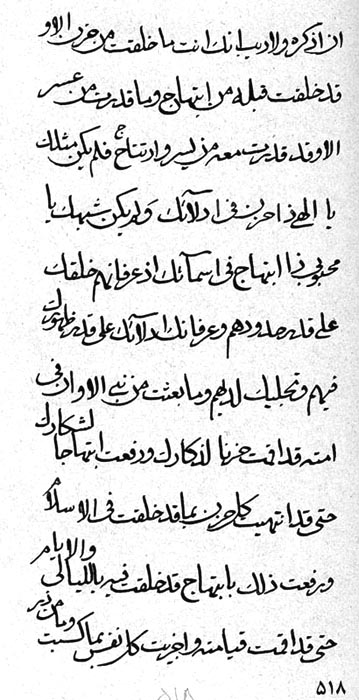 ان اذكره ولا ريب انك انت ما خلقت من حزن الا و
قد خلقت قبله من ابتهاج وما قدرت من عسر
الا وقد قدرت معه من يسر وارتتاح فلم يكن مثلك
يا الهي ذا حزن في ادلائك ولم يكن شبهك يا
محبوبي ذا ابتهاج في اسمائك اذ عرفانهم خلقك
على قدر حدودهم وعرفانك ادلائك على قدر ظهورك
فيهم وتجليك لديهم وما بعثت من نبي الا وان في
امته قد اقمت حزنا لاذكارك ورفعت ابتهاجا لشكارك
حتى قد انتهيت كل حزن بما قد خلقت في الاسلام
ورفعت ذلك بابتهاج قد خلقت فيه بالليالي والايام
حتى قد اقمت قيامته واجزيت كل نفس بما كسبت وما من
٥١٨